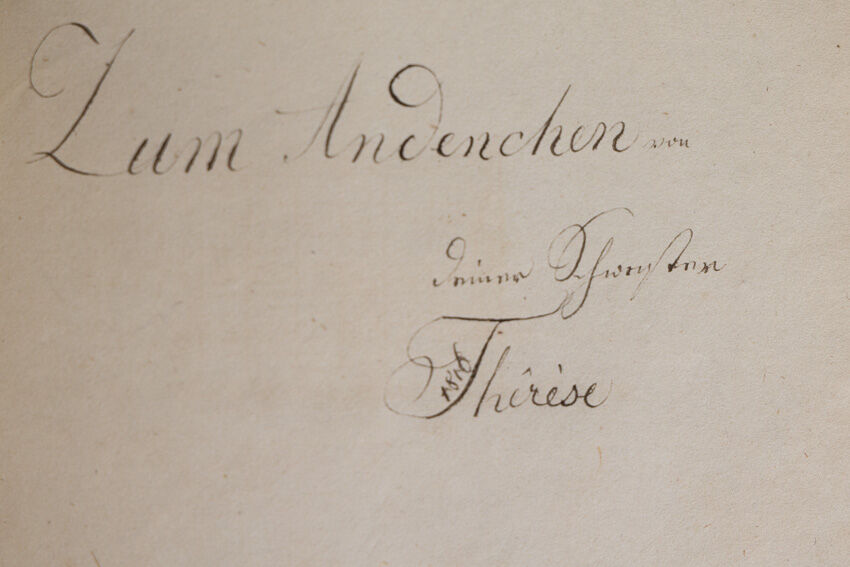 Zum Andenchen von
deiner Schwester
Thêrèse
1818